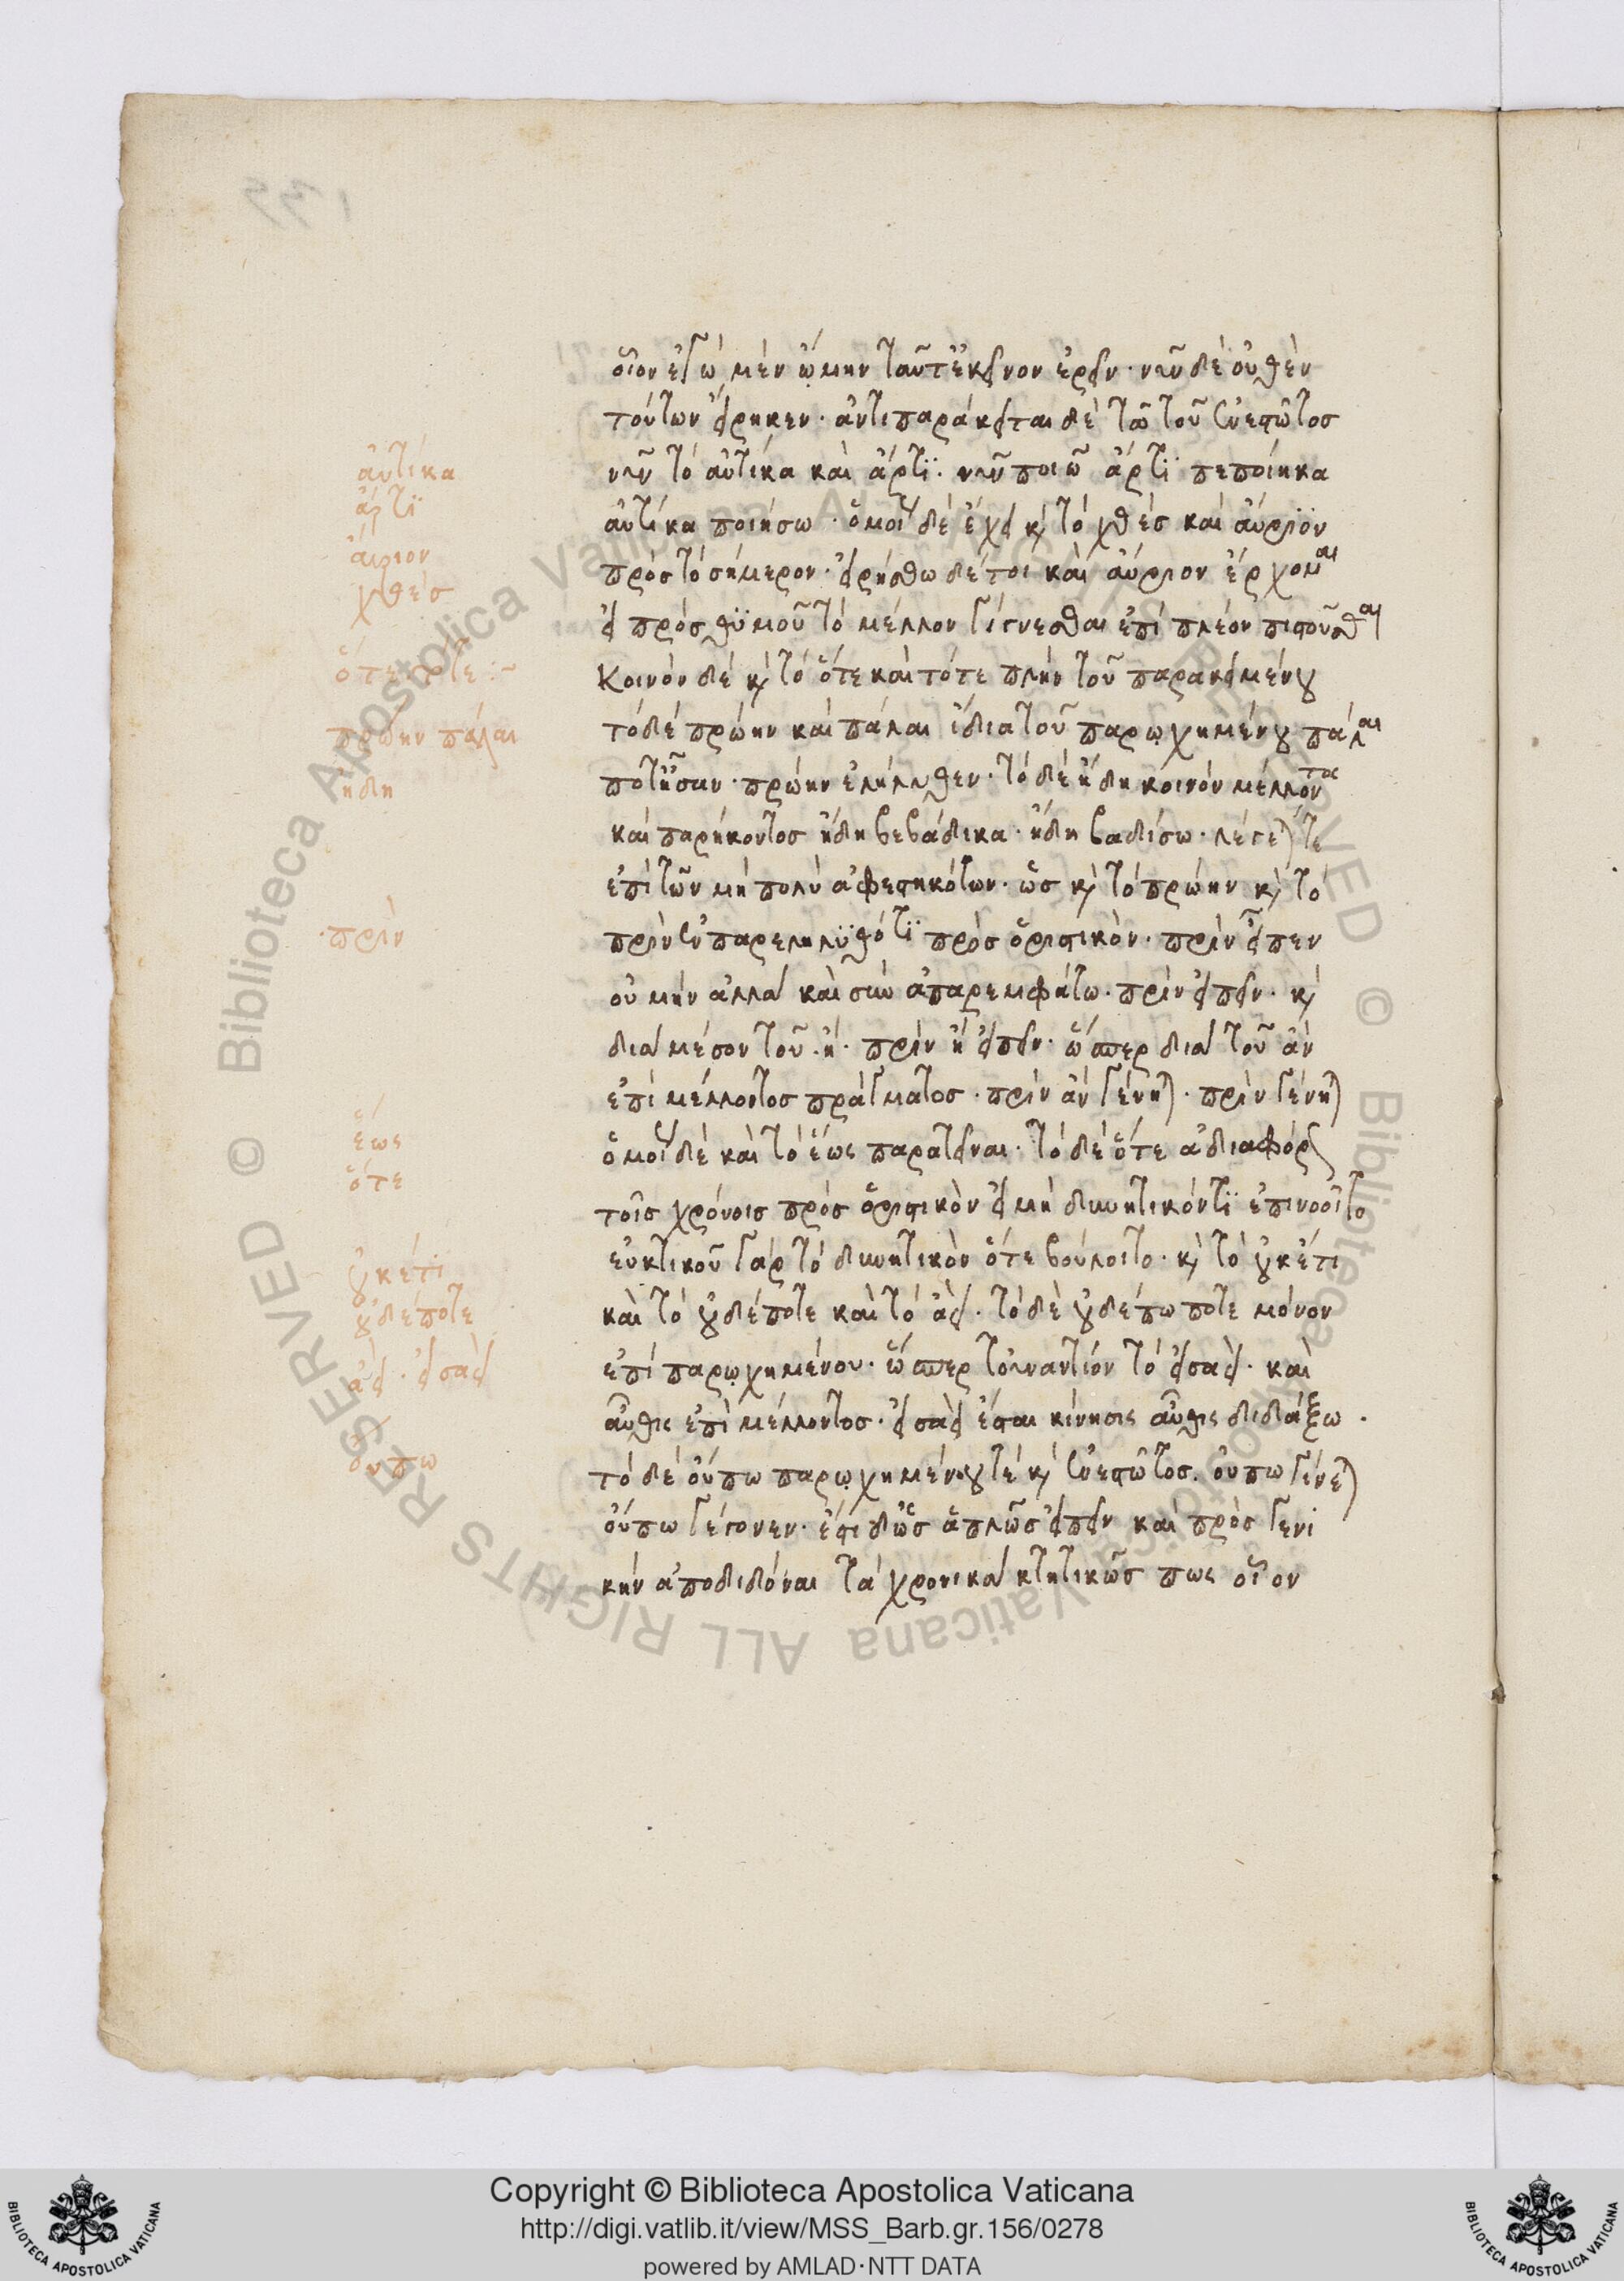 αὐτίκα
ἄρτϊ
αὔριον
χθές
ὅτε τότε :~
πρώην πάλαι
ἤδη
·πρὶν
ἕως
ὅτε
οὐκέτι
οὐδέποτε
ἀεὶ · εἰσαεὶ
οὔπω
οἷον ἐγὼ μὲν ᾤμην ταῦτ' ἐκεῖνον ἐρεῖν · νῦν δὲ οὐθὲν
τούτων εἴρηκεν · ἀντιπαράκειται δὲ τῶ τοῦ ἐνεστῶτος
νῦν τὸ αὐτίκα καὶ ἄρτϊ · νῦν ποιῶ ἄρτϊ πεποίηκα
αὐτίκα ποιήσω · ὁμοίως δὲ ἔχει καὶ τὸ χθὲς καὶ αὔριον
πρὸς τὸ σήμερον · εἰρήσθω δέ τοι καὶ αὔριον ἔρχομαι
εἰ πρὸς θϋμοῦ τὸ μέλλον γίγνεσθαι ἐπὶ πλέον πιστοῦσθαι
Κοινὸν δὲ καὶ τὸ ὅτε καὶ τότε πλὴν τοῦ παρακειμένου
τὸ δὲ πρώην καὶ πάλαι ἴδια τοῦ παρῳχημένου πάλαι
ποτ' ἦσαν · πρώην ἐλήλυθεν · τὸ δὲ ἤδη κοινὸν μέλλοντος
καὶ παρήκοντος ἤδη βεβάδικα · ἤδη βαδίσω · λέγεταί τε
ἐπὶ τῶν μὴ πολὺ ἀφεστηκότων · ὡς καὶ τὸ πρώην καὶ τὸ
πρὶν ἐν παρεληλϋθότϊ πρὸς ὁριστικὸν · πρὶν εἶπεν
οὐ μὴν ἀλλὰ καὶ σὺν ἀπαρεμφάτω · πρὶν εἰπεῖν · καὶ
διὰ μέσου τοῦ · ἢ · πρὶν ἢ εἰπεῖν · ὥσπερ διὰ τοῦ ἂν
ἐπὶ μέλλοντος πράγματος · πρὶν ἂν γένηται · πρὶν γένηται
ὁμοίως δὲ καὶ τὸ ἕως παρατεῖναι · τὸ δὲ ὅτε ἀδιαφόρως
τοῖς χρόνοις πρὸς ὁριστικὸν εἰ μὴ διανοητικόν τϊ ἐπινοοῖτο
εὐκτικοῦ γὰρ τὸ διανοητικὸν ὅτε βούλοιτο · καὶ τὸ οὐκέτι
καὶ τὸ οὐδέποτε καὶ τὸ ἀεὶ · τὸ δὲ οὐδεπώποτε μόνον
ἐπὶ παρῳχημένου · ὥσπερ τοὐναντίον τὸ εἰσαεὶ · καὶ
αὖθις ἐπὶ μέλλοντος · εἰσαεὶ ἔσται κίνησις αὖθις διδάξω ·
τὸ δὲ οὔπω παρῳχημένου τὲ καὶ ἐνεστῶτος · οὔπω γίνεται
οὔπω γέγονεν · ἔστι δ' ὡς ἁπλῶς εἰπεῖν καὶ πρὸς γενι
κὴν ἀποδιδόναι τὰ χρονικὰ κτητικῶς πως οἷον
Copyright © Biblioteca Apostolica Vaticana
http://digi.vatlib.it/view/MSS_Barb.gr.156/0278
powered by AMLAD·NTT DATA